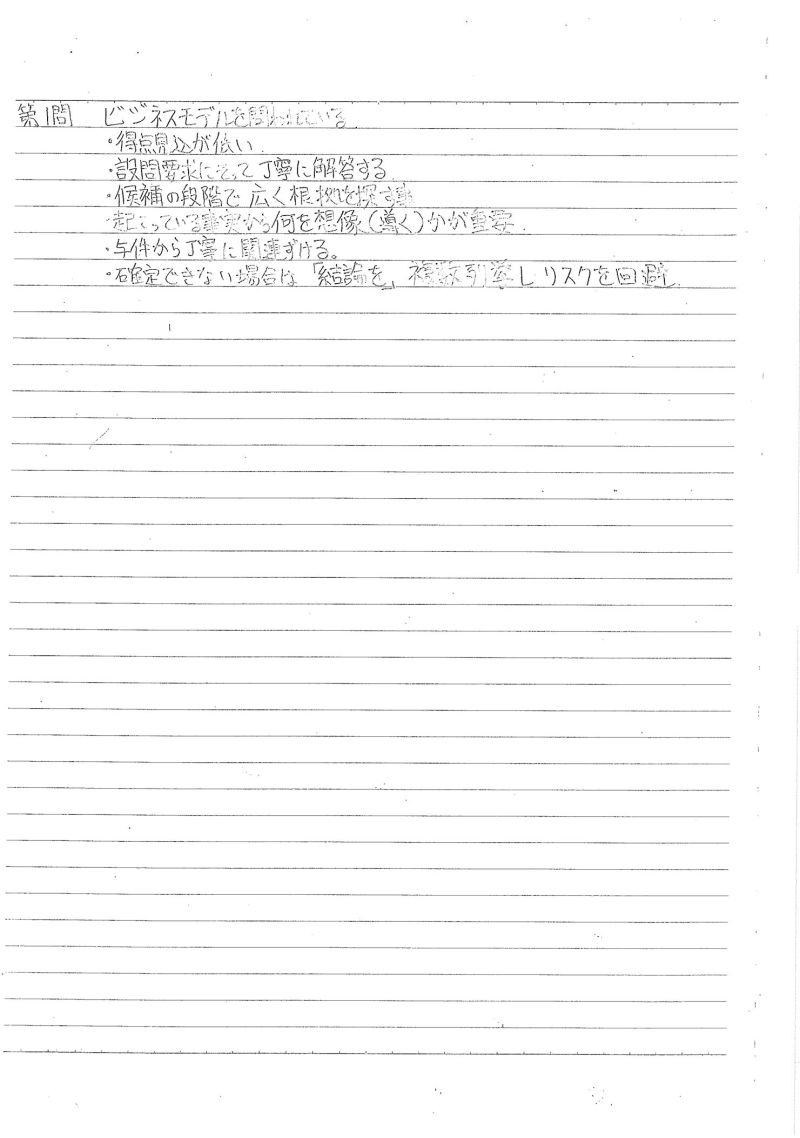 第1問 ビジネスモデルを問われている
・得点見込が低い.
・設問要求にそって丁寧に解答する.
・候補の段階で広く根拠を探す事
・起こっている事実から何を想像(導く)かが重要.
・与件から丁寧に関連ずける。
・確定できない場合は「結論を」複数列挙しリスクを回避.